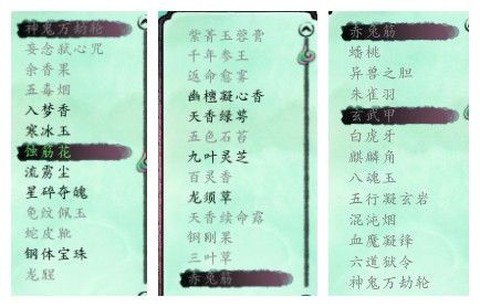 神鬼万劫轮
妄念弑心咒
余香果
五毒烟
入梦香
寒冰玉
蚀筋花
流雾尘
星碎夺魄
龟纹佩玉
蛇皮靴
钢体宝珠
龙涎
紫菁玉蓉膏
千年参王
返命愈雾
幽檀凝心香
天香绿萼
五色石苔
九叶灵芝
百灵香
龙须草
天香续命露
铜刚果
三叶草
赤兔筋
赤兔筋
蟠桃
异兽之胆
朱雀羽
玄武甲
白虎牙
麒麟角
八魂玉
五行凝玄岩
混沌烟
血魔凝锋
六道狱令
神鬼万劫轮